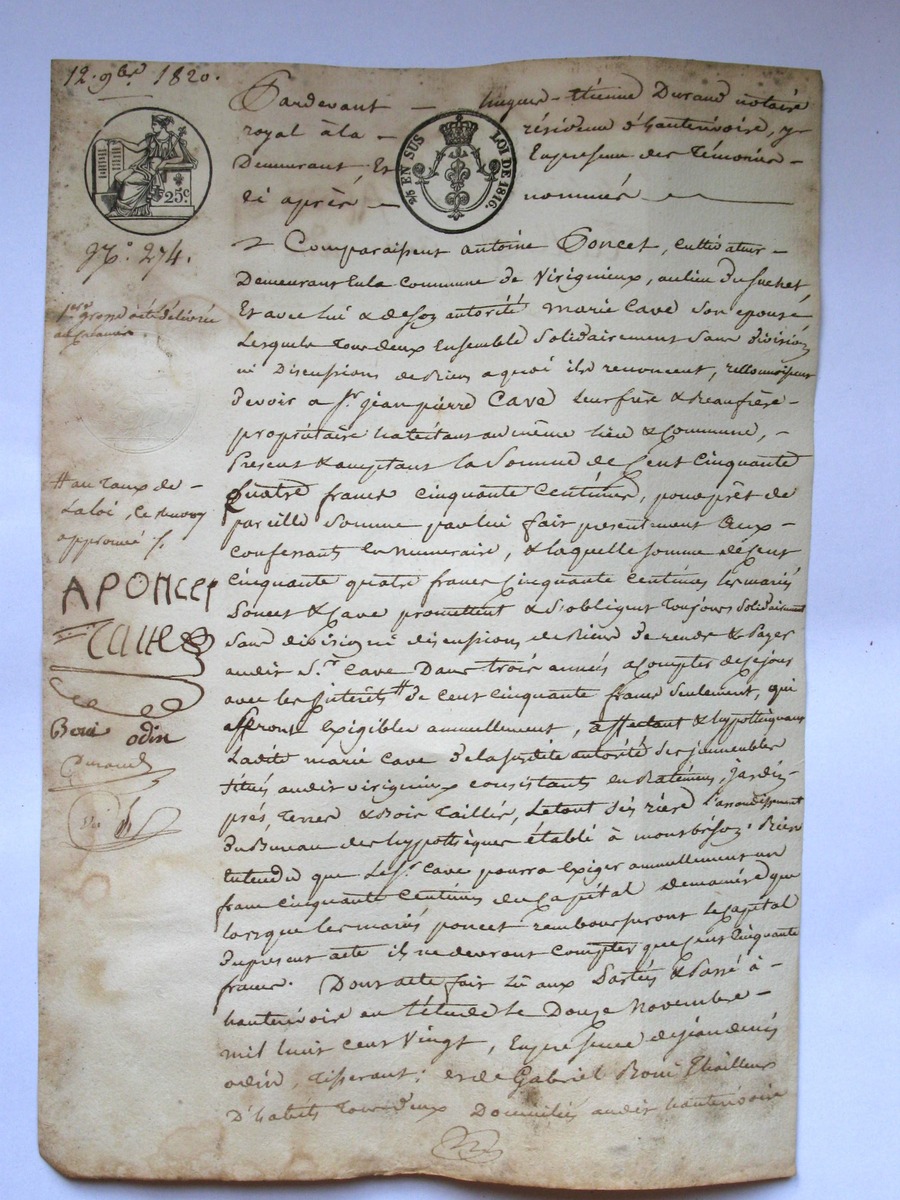 12. 9bre 1820.
Pardevant — hugues-étienne Durand notaire
royal à la — résidence d'hauterivoire, y
Demeurant, Et En presence des Témoins —
ci après — nommés —
25 EN SUS LOI DE 1816.
25c.
No. 274.
Comparaissent antoine Poncet, Cultivateur —
Demeurant En la commune de Virignieux, au lieu du suchet
Et avec Lui & de son autorité marie Cave son epouse
Lesquels tous deux Ensemble Solidairement Sans division
ni Discussions de biens a quoi ils renoncent, reconnoissent
devoir a Sr. jean pierre Cave leur frère & beaufrère —
propriétaire habitant au même lieu & Commune, —
Present & acceptant la Somme de Cent Cinquante
quatre francs cinquante Centimes, pour prêt de
pareille Somme par lui fait presentement aux —
confessants En numeraire, & laquelle somme de Cent
Cinquante quatre francs Cinquante Centimes les mariés
Poncet & Cave promettent & s'obligent Toujours Solidairement
Sans division ni discussions de biens de rendre & Payer
audit Sr. Cave Dans trois années a Compter de ce jour
avec les Interêts # de cent cinquante francs Seulement, qui
Seront Exigibles annuellement, affectant & hypothéquant
Ladite marie Cave de la susdite autorité ses immeubles
Situés audit virignieux consistants En Batiments, jardin,
prés, Terres & Bois Taillis, Le tout Sis rière l'arrondissement
du Bureau des hypothèques établi à montbrison. Bien
Entendu que Le Sr. Cave pourra Exiger annuellement un
franc Cinquante Centimes du Capital de manière que
lorsque les mariés poncet rembourseront le Capital
du present acte ils ne devront Compter que Cent Cinquante
francs. Dont acte fait Lu aux Parties & Passé à —
hauterivoire En l'étude Le Douze Novembre —
mil huit cent Vingt, En presence de jean denis
odin, Tisserant; et de Gabriel Boui Thailleur
D'habits Tous deux Domiciliés audit hauterivoire
1ere grosse a été délivrée
au Créancier
# au Taux de —
La loi, ce renvoy
approuvé
A PONCET
CAVE
Boui odin
Durand